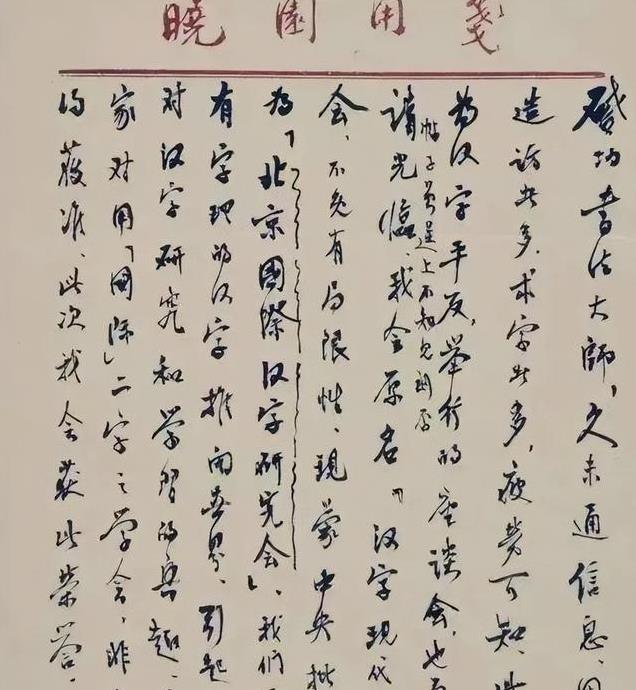 曉園用箋
啟功書法大師,久未通信息,
造訪者多,求字者多,疲劳可知,
为汉字平反,举行的座谈会,也
帖子曾送上不知見到否
請光临、我会原名「汉字现代
会、不免有局限性、现蒙中央批
为「北京國際汉字研究会」、我们
有字理的汉字推向世界、引起
对汉字研究和学習的兴趣、
家对用「國际」二字之学会、非
得获准、此次我会获此荣誉、